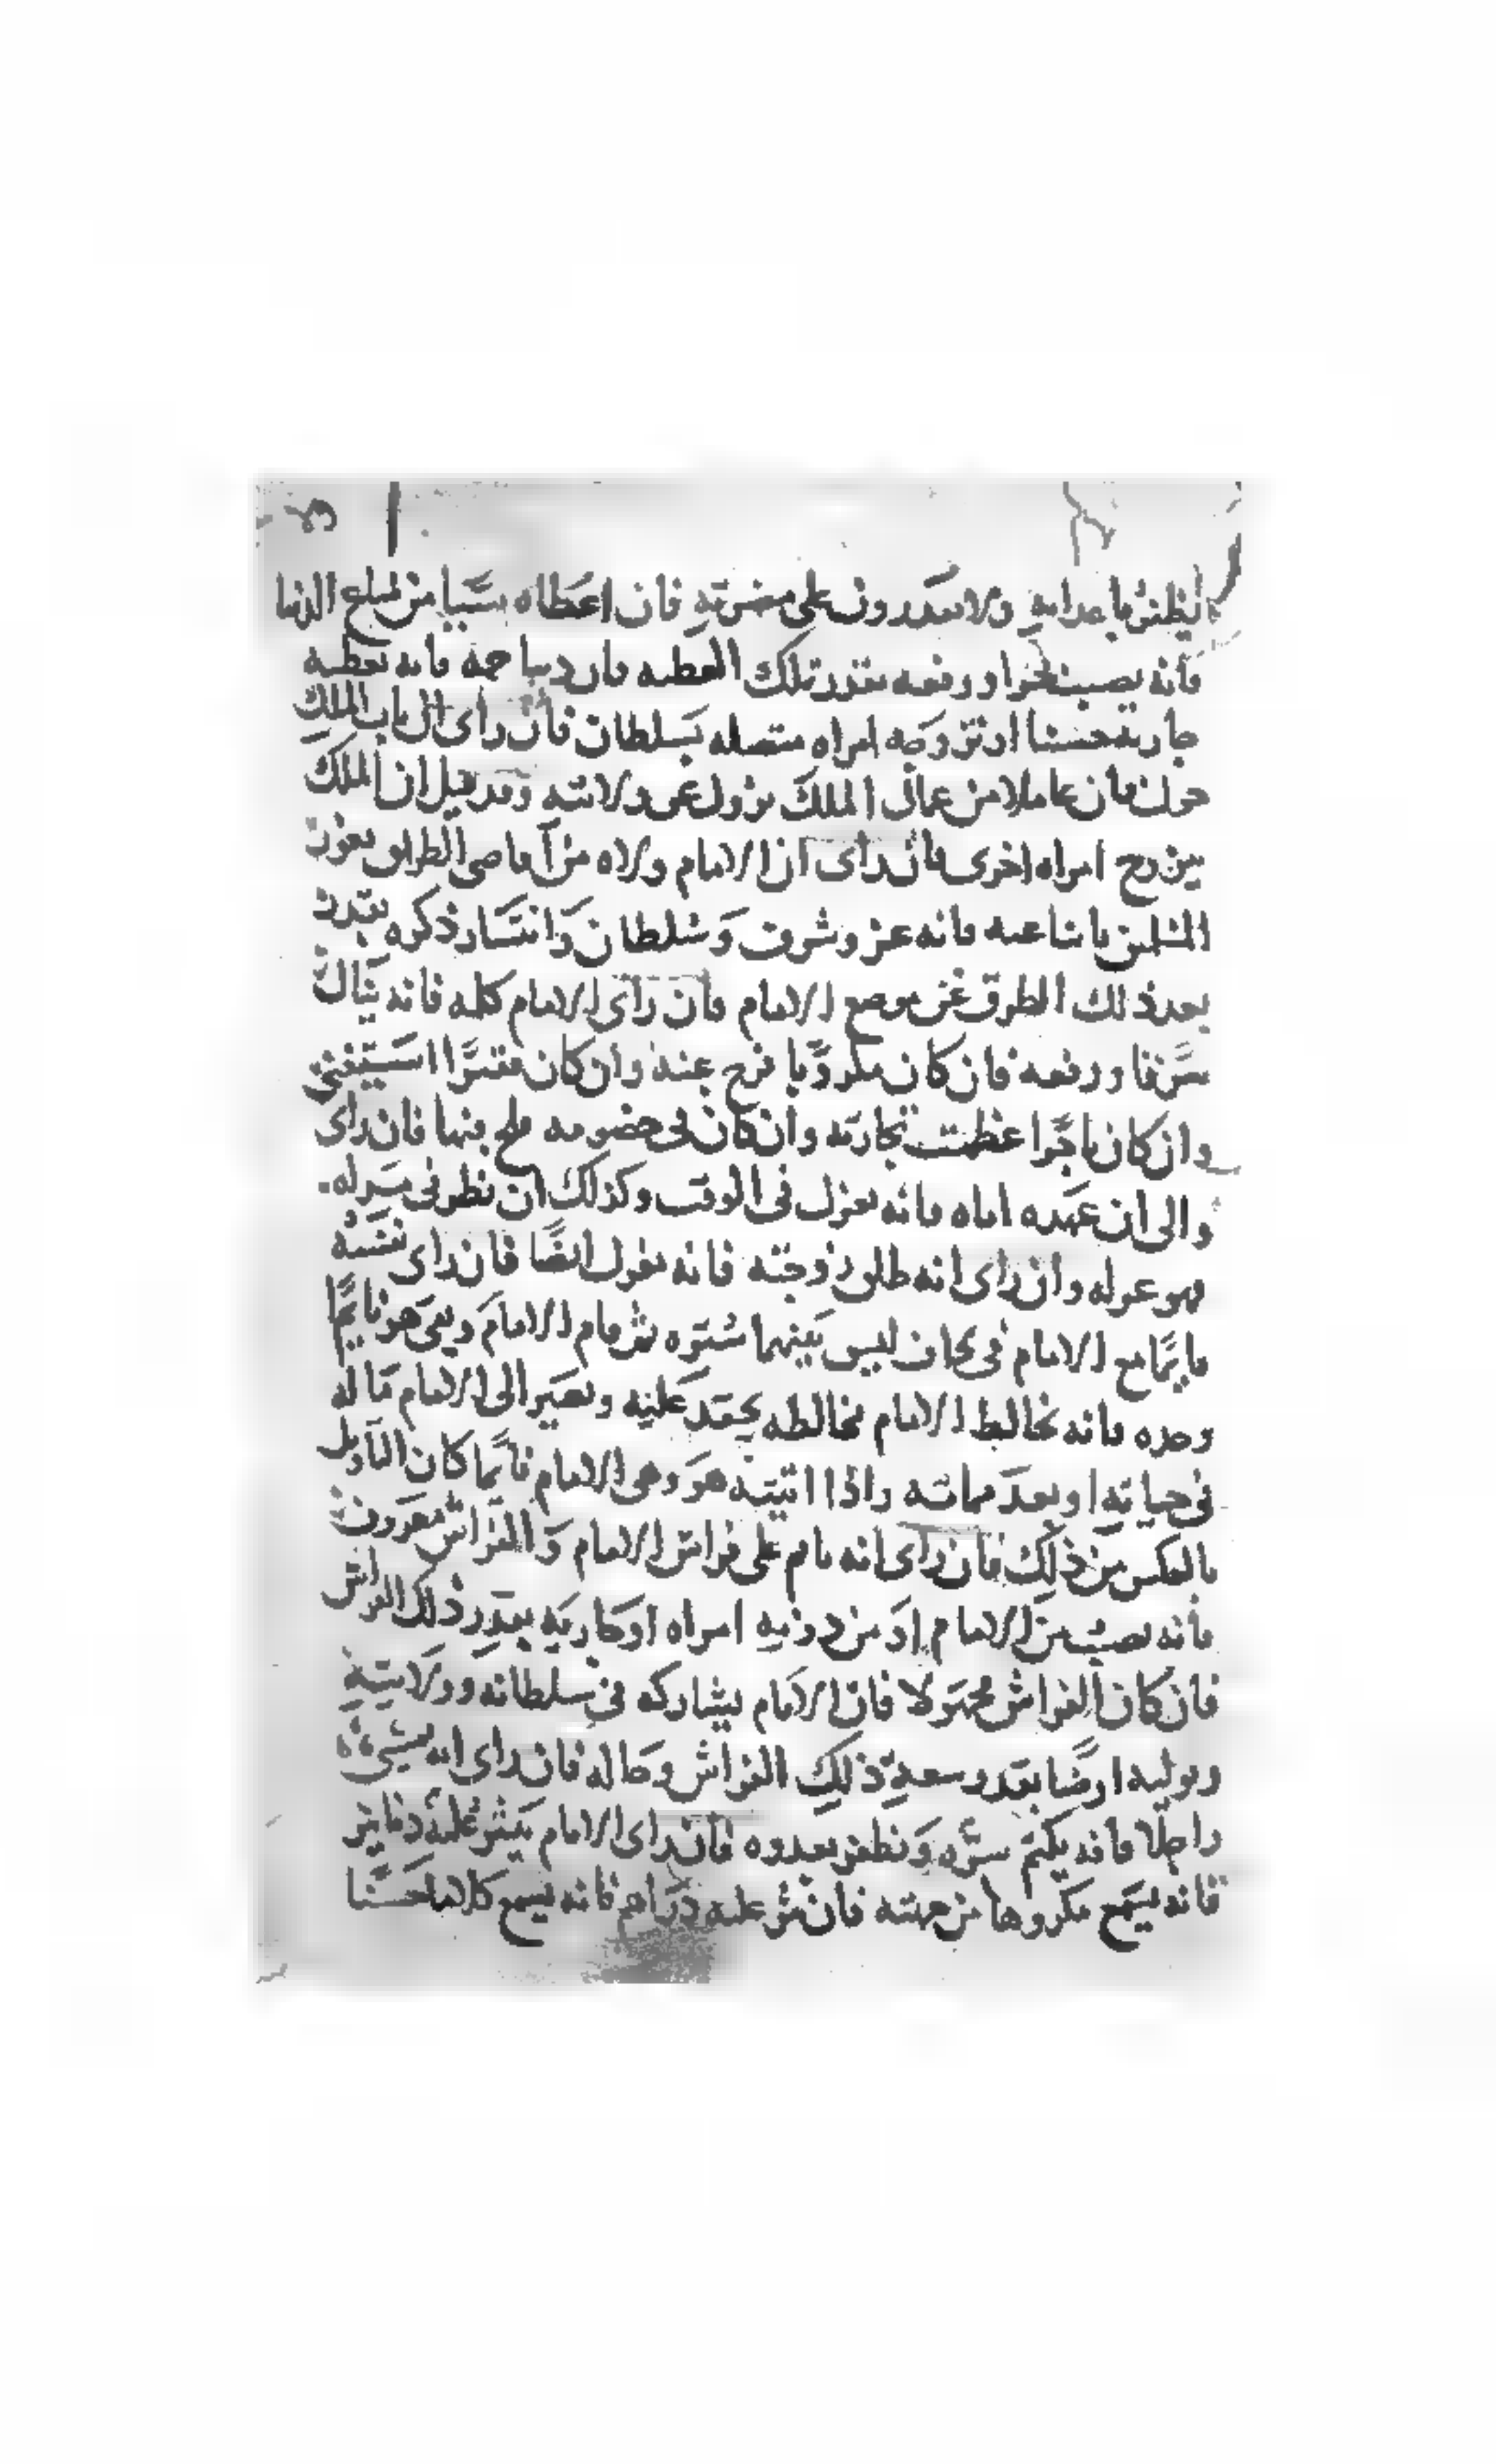 يظفر باعدايه ولا يقدرون على مضرته فان اعطاه شيا من مبلع الدنيا
فانه يصيب فخرا ورفعه بقدر تلك العطيه فان ديباجه فانه يعطيه
جاريه حسنا او تزوجه امراه متصله بسلطان فان راى ان باب الملك
حول فان عاملا من عمال الملك يزول عن ولايته وقد قيل ان الملك
يتزوج امراه اخرى فان راى ان الامام ولاه من اقاصى الطراف تغور
المسلمين فانه عز وشرف وسلطان وانتشار ذكره بقدر
بعد ذلك الطرف عن موضع الامام فان راى الامام كلمه فانه ينال
شرفا ورفعه فان كان مكروبا فرج عنه وان كان فقيرا استغنى
وان كان تاجرا عظمت تجارته وان كان فى خصومه فلج فيها فان راى
والى ان عهده اتاه فانه يعزل فى الوقت وكذلك ان نظر فى
فهو عزله وان راى انه طلق زوجته فانه يعزل ايضا فان راى نفسه
قايما مع الامام فى مكان ليس بينهما ستره ثم قام الامام وبقى هو نايما
وحده فانه يخالط الامام مخالطه يحقد عليه ويصير الى الامام ماله
فى حياته او بعد مماته واذا انتبه هو وبقى الامام نايما كان التاويل
بالعكس من ذلك فان راى انه نام على فراش الامام والفراش معروف
فانه يصيب من الامام او من ذويه امراه او جاريه بقدر ذلك الفراش
فان كان الفراش مجهولا فان الامام يشاركه فى سلطانه وولايته
ويوليه ارضا بقدر وسعة ذلك الفراش وحاله فان راى انه
راجلا فانه يكتم سره ويظفر بعدوه فان راى الامام ينثر عليه دنانير
فانه يسمع مكروها من جهته فان نثر عليه دراهم فانه يسمع كلاما حسنا